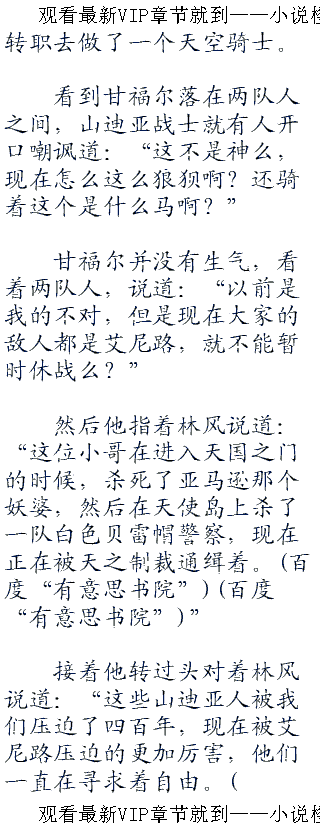 观看最新VIP章节就到——小说检
转职去做了一个天空骑士。
看到甘福尔落在两队人
之间，山迪亚战士就有人开
口嘲讽道：“这不是神么，
现在怎么这么狼狈啊？还骑
着这个是什么马啊？”
甘福尔并没有生气，看
着两队人，说道：“以前是
我的不对，但是现在大家的
敌人都是艾尼路，就不能暂
时休战么？”
然后他指着林风说道：
“这位小哥在进入天国之门
的时候，杀死了亚马逊那个
妖婆，然后在天使岛上杀了
一队白色贝雷帽警察，现在
正在被天之制裁通缉着。(百
度“有意思书院”)(百度
“有意思书院”)”
接着他转过头对着林风
说道：“这些山迪亚人被我
们压迫了四百年，现在被艾
尼路压迫的更加厉害，他们
一直在寻求着自由。(
观看最新VIP章节就到——小说检